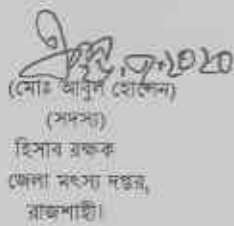 (মোঃ আবুল হোসেন)
(সদস্য)
হিসাব রক্ষক
জেলা মৎস্য দপ্তর,
রাজশাহী।